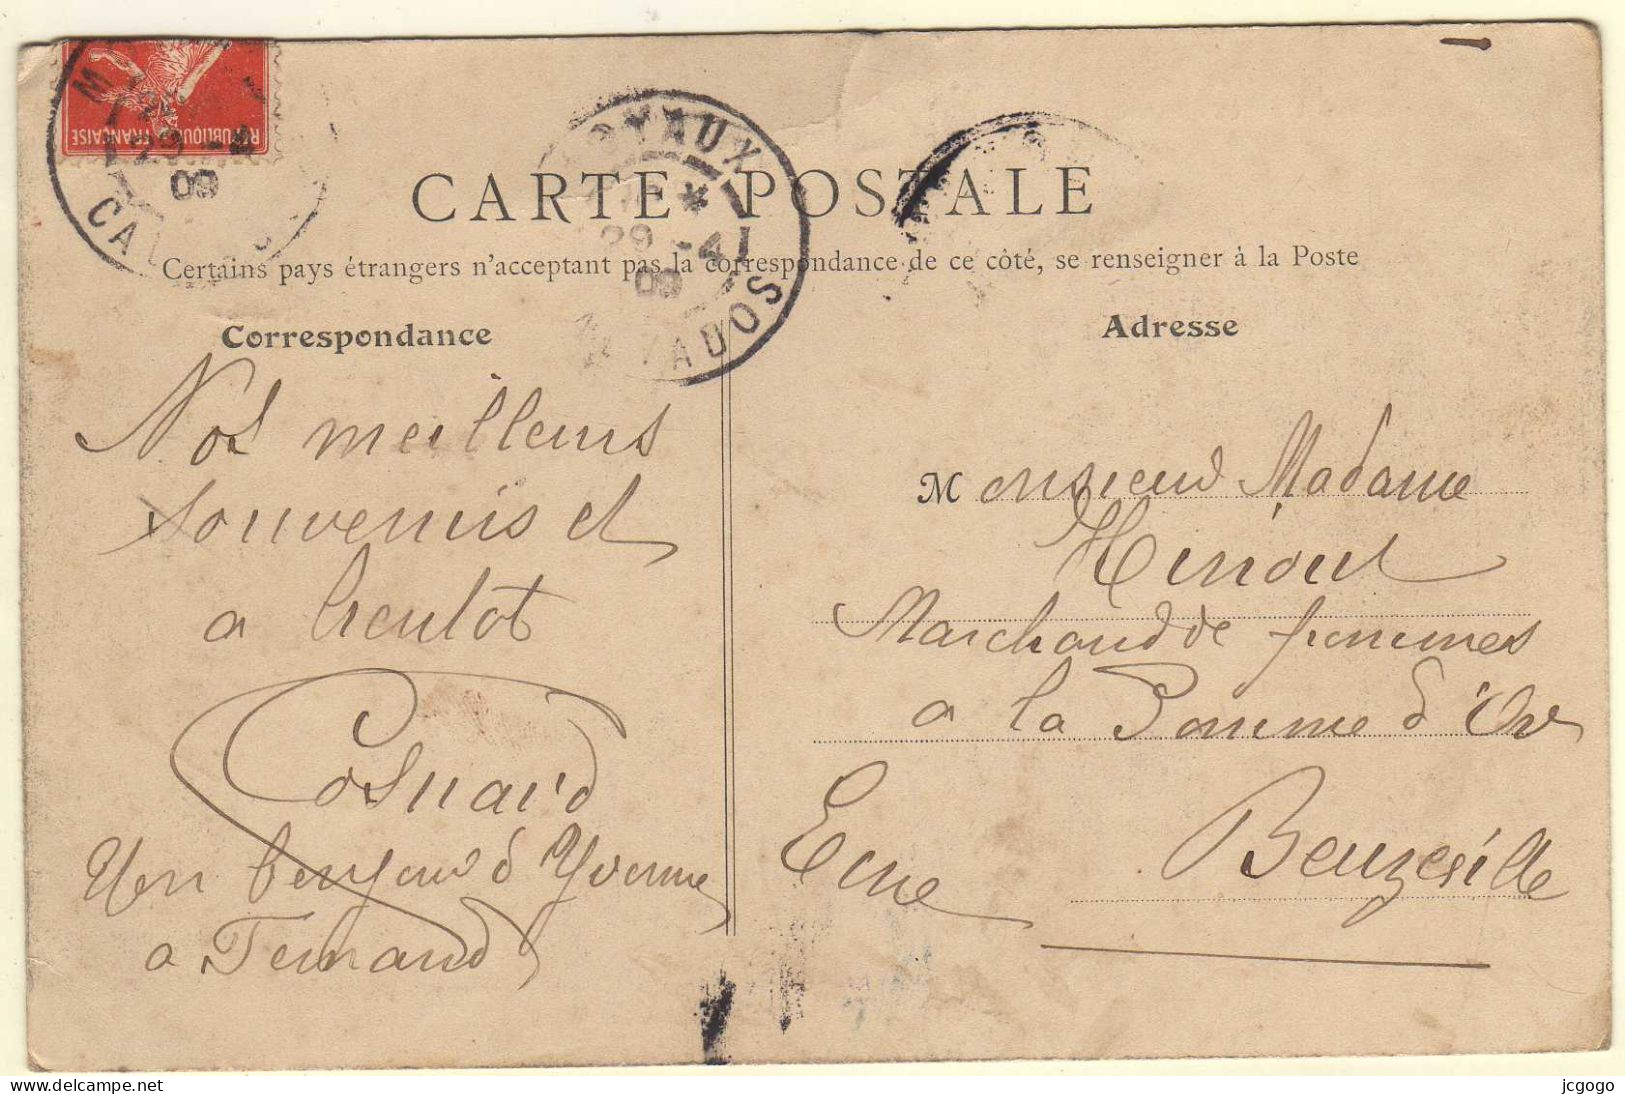 REPUBLIQUE FRANÇAISE
09
CA
OYAUX
29 -4
09
VADOS
CARTE POSTALE
Certains pays étrangers n'acceptant pas la correspondance de ce côté, se renseigner à la Poste
Correspondance
Nos meilleurs
souvenirs et
a bientot
Cosnard
Un bonjour d Yvonne
a Fernand
Adresse
Monsieur Madame
Marchand de pommes
a la Pomme d'Or
Beuzeville
Eure
jcgogo